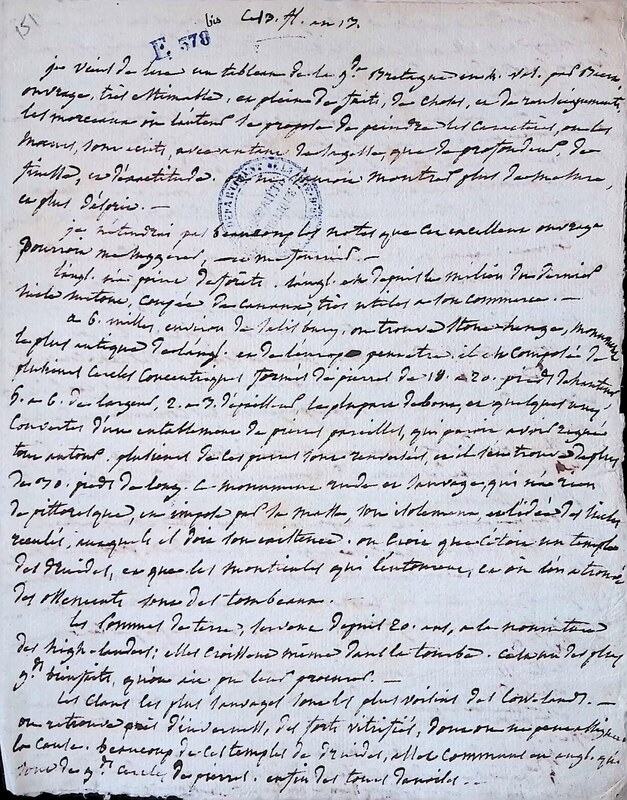 151
bis Ce 13. fl. an 13.
F. 378
je viens de lire un tableau de la g.de Bretagne en 4. vol. par Baert
ouvrage, très estimable, et plein de faits, de choses, et de renseignements
les morceaux où l'auteur se propose de peindre les caractères, ou les
moeurs, sont écrits, avec autant de sagesse, que de profondeur de
finesse, et d'exactitude. on ne pourroit montrer plus de mesure,
et plus d'esprit. —
je n'étendrai pas beaucoup les notes que cet excellent ouvrage
pourroit me suggérer, — et me fournir. —
l'angl. n'a point de forêts. l'angl. est depuis le milieu du dernier
siècle surtout, coupée de canaux très utiles a son commerce. —
a 6. milles, environ de Salisbury, on trouve Stone henge, monument
le plus antique de l'angl. et de l'europe peut etre. il est composé de
plusieurs cercles concentriques formés de pierres de 18. a 20. pieds de hauteur
5. a 6. de largeur, 2. a 3. d'épaisseur la plupart debout, et quelques unes
couvertes d'un entablement de pierres pareilles, qui paroit avoir régné
tout autour, plusieurs de ces pierres sont renversées et il s'en trouve de plus
de 70. pieds de long. ce monument rude et sauvage, qui n'a rien
de pittoresque, en impose par sa masse, son isolement, et l'idée des siècles
reculés, auxquels il doit son existence. on croit que c'étoit un temple
des druides, et que les monticules qui l'entourent, et où l'on a trouvé
des ossements sont des tombeaux.
les pommes de terre, servent depuis 20. ans, a la nourriture
des high-landers; elles croissent même dans la tourbe. cela est des plus
g.ds bienfaits, qu'on ait pu leur procurer. —
les clans les plus sauvages sont les plus voisins des Lowlands. —
on retrouve près d'inverness, des forts vitrifiés, dont on ne peut assigner
la cause. beaucoup de ces temples de druides, assez communs en angl. qui
sont de g.ds cercles de pierres. enfin des tours